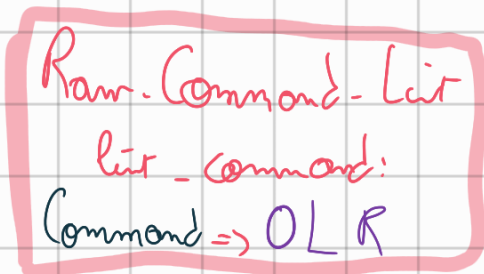 Ram-Command-List
list-command:
Command => OLR